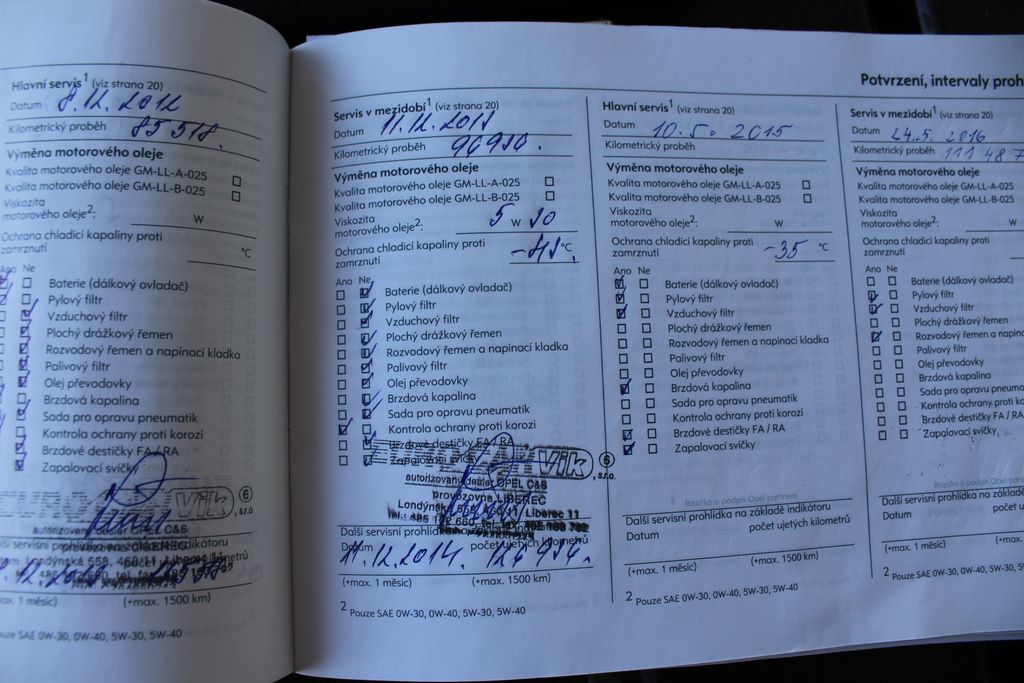 Hlavní servis¹ (viz strana 20)
Datum 8.12.2012
Kilometrický proběh 85 518.
Výměna motorového oleje
Kvalita motorového oleje GM-LL-A-025
Kvalita motorového oleje GM-LL-B-025
Viskozita
motorového oleje²: W
Ochrana chladicí kapaliny proti
zamrznutí °C
Ano Ne
Baterie (dálkový ovladač)
Pylový filtr
Vzduchový filtr
Plochý drážkový řemen
Rozvodový řemen a napínací kladka
Palivový filtr
Olej převodovky
Brzdová kapalina
Sada pro opravu pneumatik
Kontrola ochrany proti korozi
Brzdové destičky FA / RA
Zapalovací svíčky
Vik s.r.o. 6
autorizovaný dealer OPEL C&S
(+max. 1500 km)
Pouze SAE 0W-30, 0W-40, 5W-30, 5W-40
Servis v mezidobí¹ (viz strana 20)
Datum
Kilometrický proběh
Výměna motorového oleje
Kvalita motorového oleje GM-LL-A-025
Kvalita motorového oleje GM-LL-B-025
Viskozita
motorového oleje²: 5 W 30
Ochrana chladicí kapaliny proti
zamrznutí °C
Ano Ne
Baterie (dálkový ovladač)
Pylový filtr
Vzduchový filtr
Plochý drážkový řemen
Rozvodový řemen a napínací kladka
Palivový filtr
Olej převodovky
Brzdová kapalina
Sada pro opravu pneumatik
Kontrola ochrany proti korozi
Brzdové destičky FA / RA
Zapalovací svíčky
Vik s.r.o. 6
autorizovaný dealer OPEL C&S
provozovna LIBEREC
Londýnská 568, 460 11 Liberec 11
Další servisní prohlídka na základě indikátoru
Datum počet ujetých kilometrů
11.12.2014.
(+max. 1 měsíc) (+max. 1500 km)
² Pouze SAE 0W-30, 0W-40, 5W-30, 5W-40
Hlavní servis¹ (viz strana 20)
Datum 10.5. 2015
Kilometrický proběh
Výměna motorového oleje
Kvalita motorového oleje GM-LL-A-025
Kvalita motorového oleje GM-LL-B-025
Viskozita
motorového oleje²: W
Ochrana chladicí kapaliny proti
zamrznutí -35 °C
Ano Ne
Baterie (dálkový ovladač)
Pylový filtr
Vzduchový filtr
Plochý drážkový řemen
Rozvodový řemen a napínací kladka
Palivový filtr
Olej převodovky
Brzdová kapalina
Sada pro opravu pneumatik
Kontrola ochrany proti korozi
Brzdové destičky FA / RA
Zapalovací svíčky
Razítko a podpis Opel partnera
Další servisní prohlídka na základě indikátoru
Datum počet ujetých kilometrů
(+max. 1 měsíc) (+max. 1500 km)
² Pouze SAE 0W-30, 0W-40, 5W-30, 5W-40
Potvrzení, intervaly proh
Servis v mezidobí¹ (viz strana 20)
Datum 24.5. 2016
Kilometrický proběh 111 487
Výměna motorového oleje
Kvalita motorového oleje GM-LL-A-025
Kvalita motorového oleje GM-LL-B-025
Viskozita
motorového oleje²: W
Ochrana chladicí kapaliny proti
zamrznutí
Ano Ne
Baterie (dálkový ovladač)
Pylový filtr
Vzduchový filtr
Plochý drážkový řemen
Rozvodový řemen a napína
Palivový filtr
Olej převodovky
Brzdová kapalina
Sada pro opravu pneuma
Kontrola ochrany proti ko
Brzdové destičky FA / RA
Zapalovací svíčky
Razítko a podpis Opel
Další servisní prohlídka na základě in
Datum počet uje
(+max. 1 měsíc) (+ma
² Pouze SAE 0W-30, 0W-40, 5W-30, 5W-